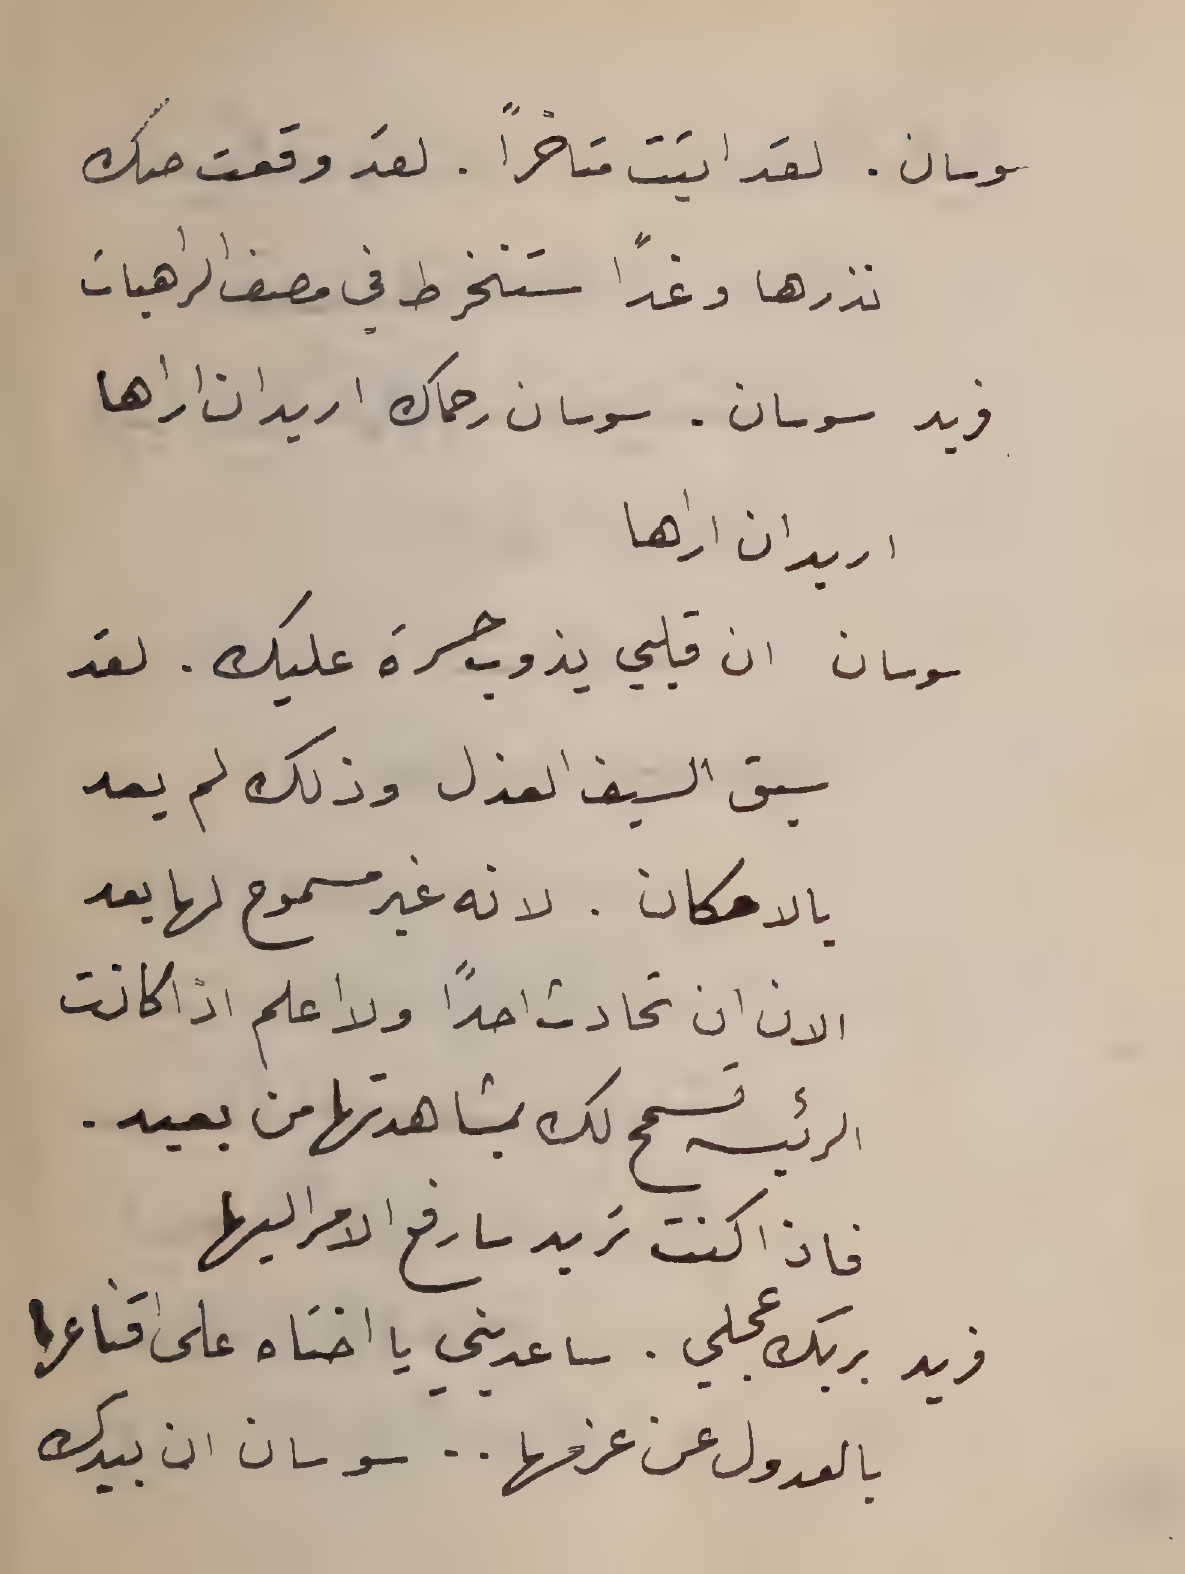 سوسان . لقد اتيت متاخرًا . لقد وقعت صك
نذرها وغدًا ستنخرط في مصف الراهبات
فريد سوسان . سوسان رحماك اريد ان اراها
اريد ان اراها
سوسان ان قلبي يذوب حسرة عليك . لقد
سبق السيف العذل وذلك لم يعد
بالامكان . لانه غير مسموح لها بعد
الان ان تحادث احدًا ولا اعلم اذا كانت
الرئيسه تسمح لك بمشاهدتها من بعيد .
فاذا كنت تريد سارفع الامر اليها
فريد بربك عجلي . ساعديني يا اختاه على اقناعها
بالعدول عن عزمها .. سوسان ان بيدك